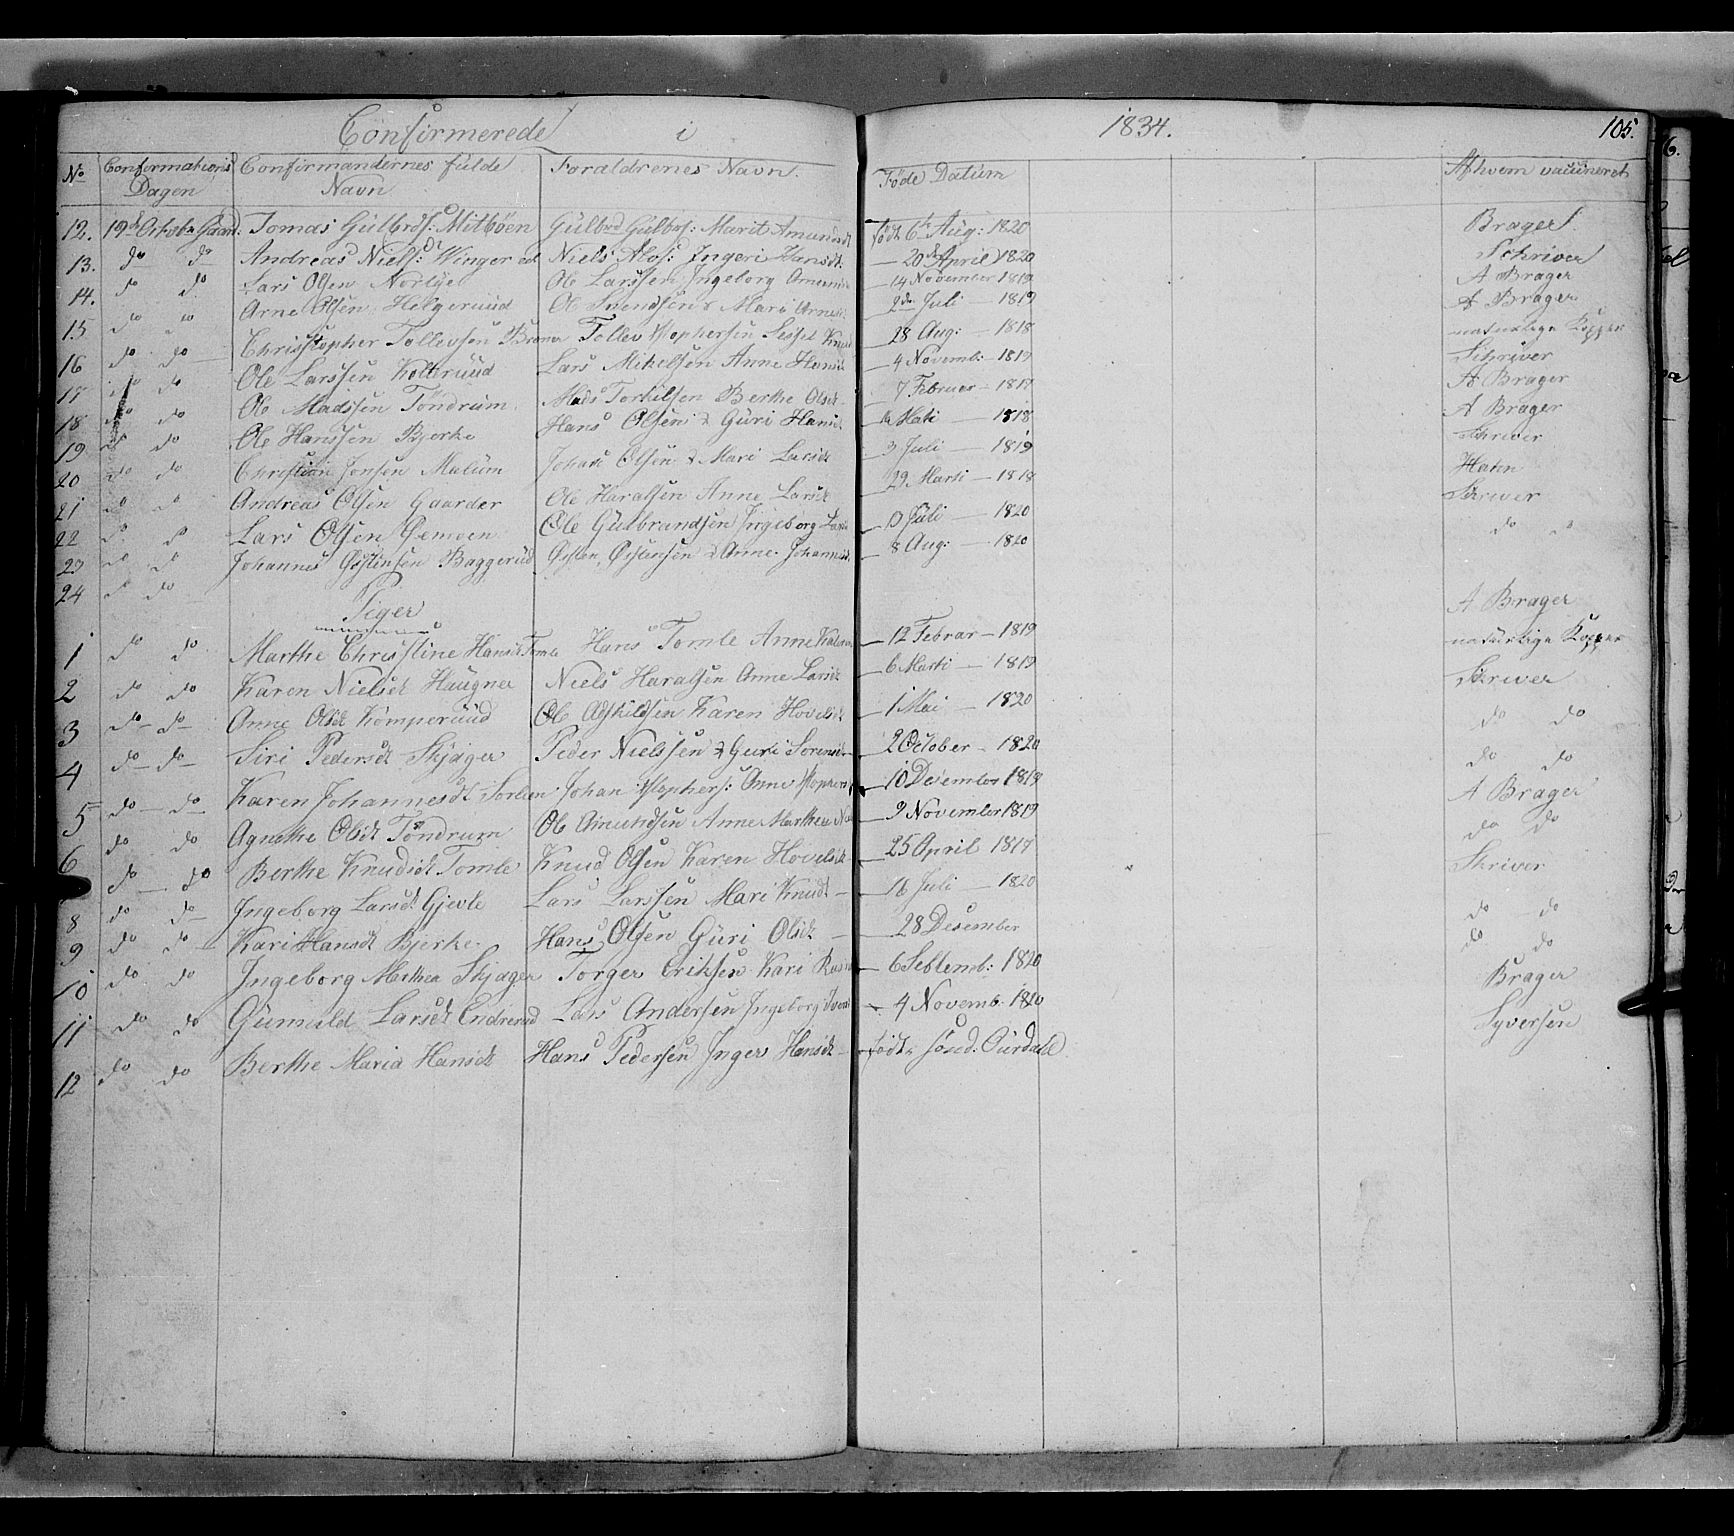 Confirmerede i 1834. 105.
No Confirmations Dagen Confirmandernes fulde Navn Foraldrenes Navn. Føde Datum Af hvem vacuneret
12. 19de Octob: Tomas Gulbrds: Mitböen Gulbrd Gulbrs: Marit Amundsdt født 6te Aug: 1820 Brager
13. do do Andreas Niels: Winger Niels Ingeri Hansdt. 20de April 1820 Schriver
14. do do Lars Olsen Norlye Ole Larssen Ingeborg 14 November 1819 A Brager
15 do do Arne Olsen Helgeruud Ole Mari 2de Juli 1819 A Brager
16 do do Christopher Tollevsen Tollev Stophersen 28 Aug: 1818 naturlige Kopper
17 do do Ole Larssen Kolteruud Lars Mikelsen Anne Hansdt 4 Novemb: 1819 Schriver
18 do do Ole Madssen Töndrum Mads Torkilsen Berthe Olsdt 7 Februar 1817 A Brager
19 do do Ole Hanssen Bjerke Hans Olsen & Guri Hansdt Marti 1818 A Brager
20 do do Christian Jonsen Malum Johans Olsen & Mari Larsdt 3 Juli 1819 Schriver
21 do do Andreas Olsen Gaarder Ole Haralsen Anne Larsdt 29 Marti 1818 Hahn
22 do do Lars Olsen Ole Gulbrandsen Ingeborg Larsdt 10 Juli 1820 Skriver
23 do do Johannes Østensen Baggerud Østen Østensen & Anne Johannesdt 8 Aug: 1820 do do
24 do do
Piger
1 do do Marthe Christine Hansdt Tomle Hans Tomle Anne 12 Februar 1819 A Brager
2 do do Karen Nielsdt Haugner Niels Haralsen Anne Larsdt 6 Marti 1819 naturlige Kopper
3 do do Anne Olsdt Komperuud Ole Karen Hovelsdt 1 Mai 1820 Skriver
4 do do Siri Pedersdt Skjager Peder Nielssen & Guri Sorensdt 2 October 1820 do do
5 do do Karen Johannesdt Sorlien Johan Stophers: Anne Stophers 10 Desember 1818 do do
6 do do Agnethe Olsdt Töndrum Ole Amundsen Anne Marthea 9 November 1819 A Brager
do do Berthe Knudsdt Tomle Knud Olsen Karen Hovelsdt 25 April 1817 do do
8 do do Ingeborg Larsdt Gjevle Lars Larssen Mari Knudt 16 Juli 1820 Skriver
9 do do Kari Hansdt Bjerke Hans Olsen Guri Olsdt 28 Desember do do
10 do do Ingeborg Marthea Skjager Torger Eriksen Kari 6 Septemb: 1820 do do
11 do do Gunuld Larsdt Endrerud Lars Andersen Ingeborg 4 Novemb. 1820 Brager
12 do do Berthe Maria Hansdt Hans Pedersen Inger Hansdt født i Ourdahl Syversen